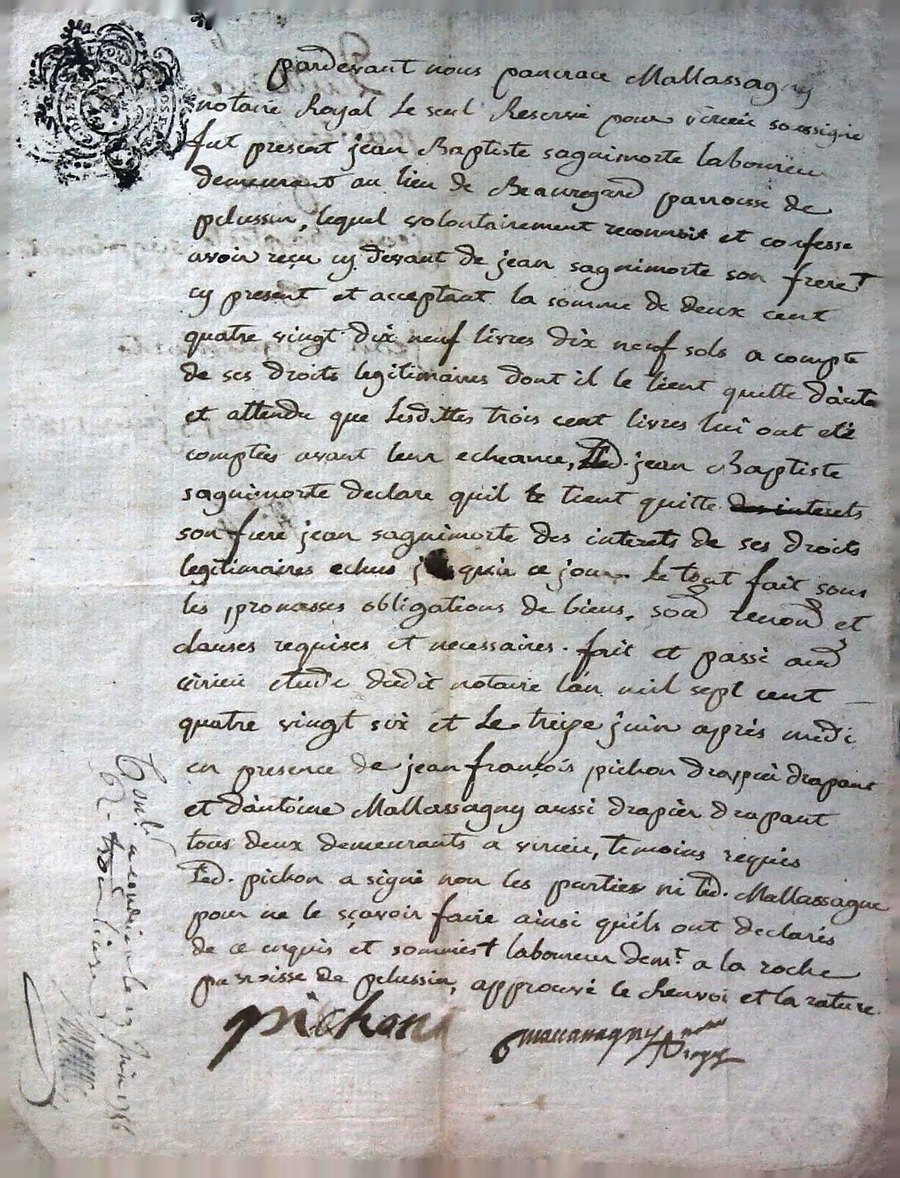 pardevant nous pancrace Mallassagny
notaire Royal Le seul Reservé pour virieu soussigné
fut present jean Baptiste saguimorte laboureur
demeurant au lieu de Beauregard parroisse de
pelussin, lequel volontairement reconnoit et confesse
avoir reçu cy devant de jean saguimorte son frere
cy present et acceptant la somme de deux cent
quatre vingt dix neuf livres dix neuf sols a compte
de ses droits legitimaires dont il le tient quitte
et attendu que Lesdittes trois cent livres lui ont eté
comptés avant leur echeance, Led. jean Baptiste
saguimorte declare qu'il le tient quitte des interets
son frere jean saguimorte des interets de ses droits
legitimaires echus jusqu'a ce jour. Le tout fait sous
les promesses obligations de biens, renon et
clauses requises et necessaires. fait et passé aud
virieu etude dudit notaire l'an mil sept cent
quatre vingt six et Le treize juin après midi
en presence de jean françois pichon drappier drapant
et d'antoine Mallassagny aussi drapier drapant
tous deux demeurants a virieu, temoins requis
Led. pichon a signé non les parties ni led. Mallassagny
pour ne le sçavoir faire ainsi qu'ils ont declarés
de ce enquis et sommés † laboureur demt. a la roche
parroisse de pelussin, approuvé le renvoi et la rature.
pichon
Mallassagny notre Royal
Contlé a condrieu le 23 juin 1786